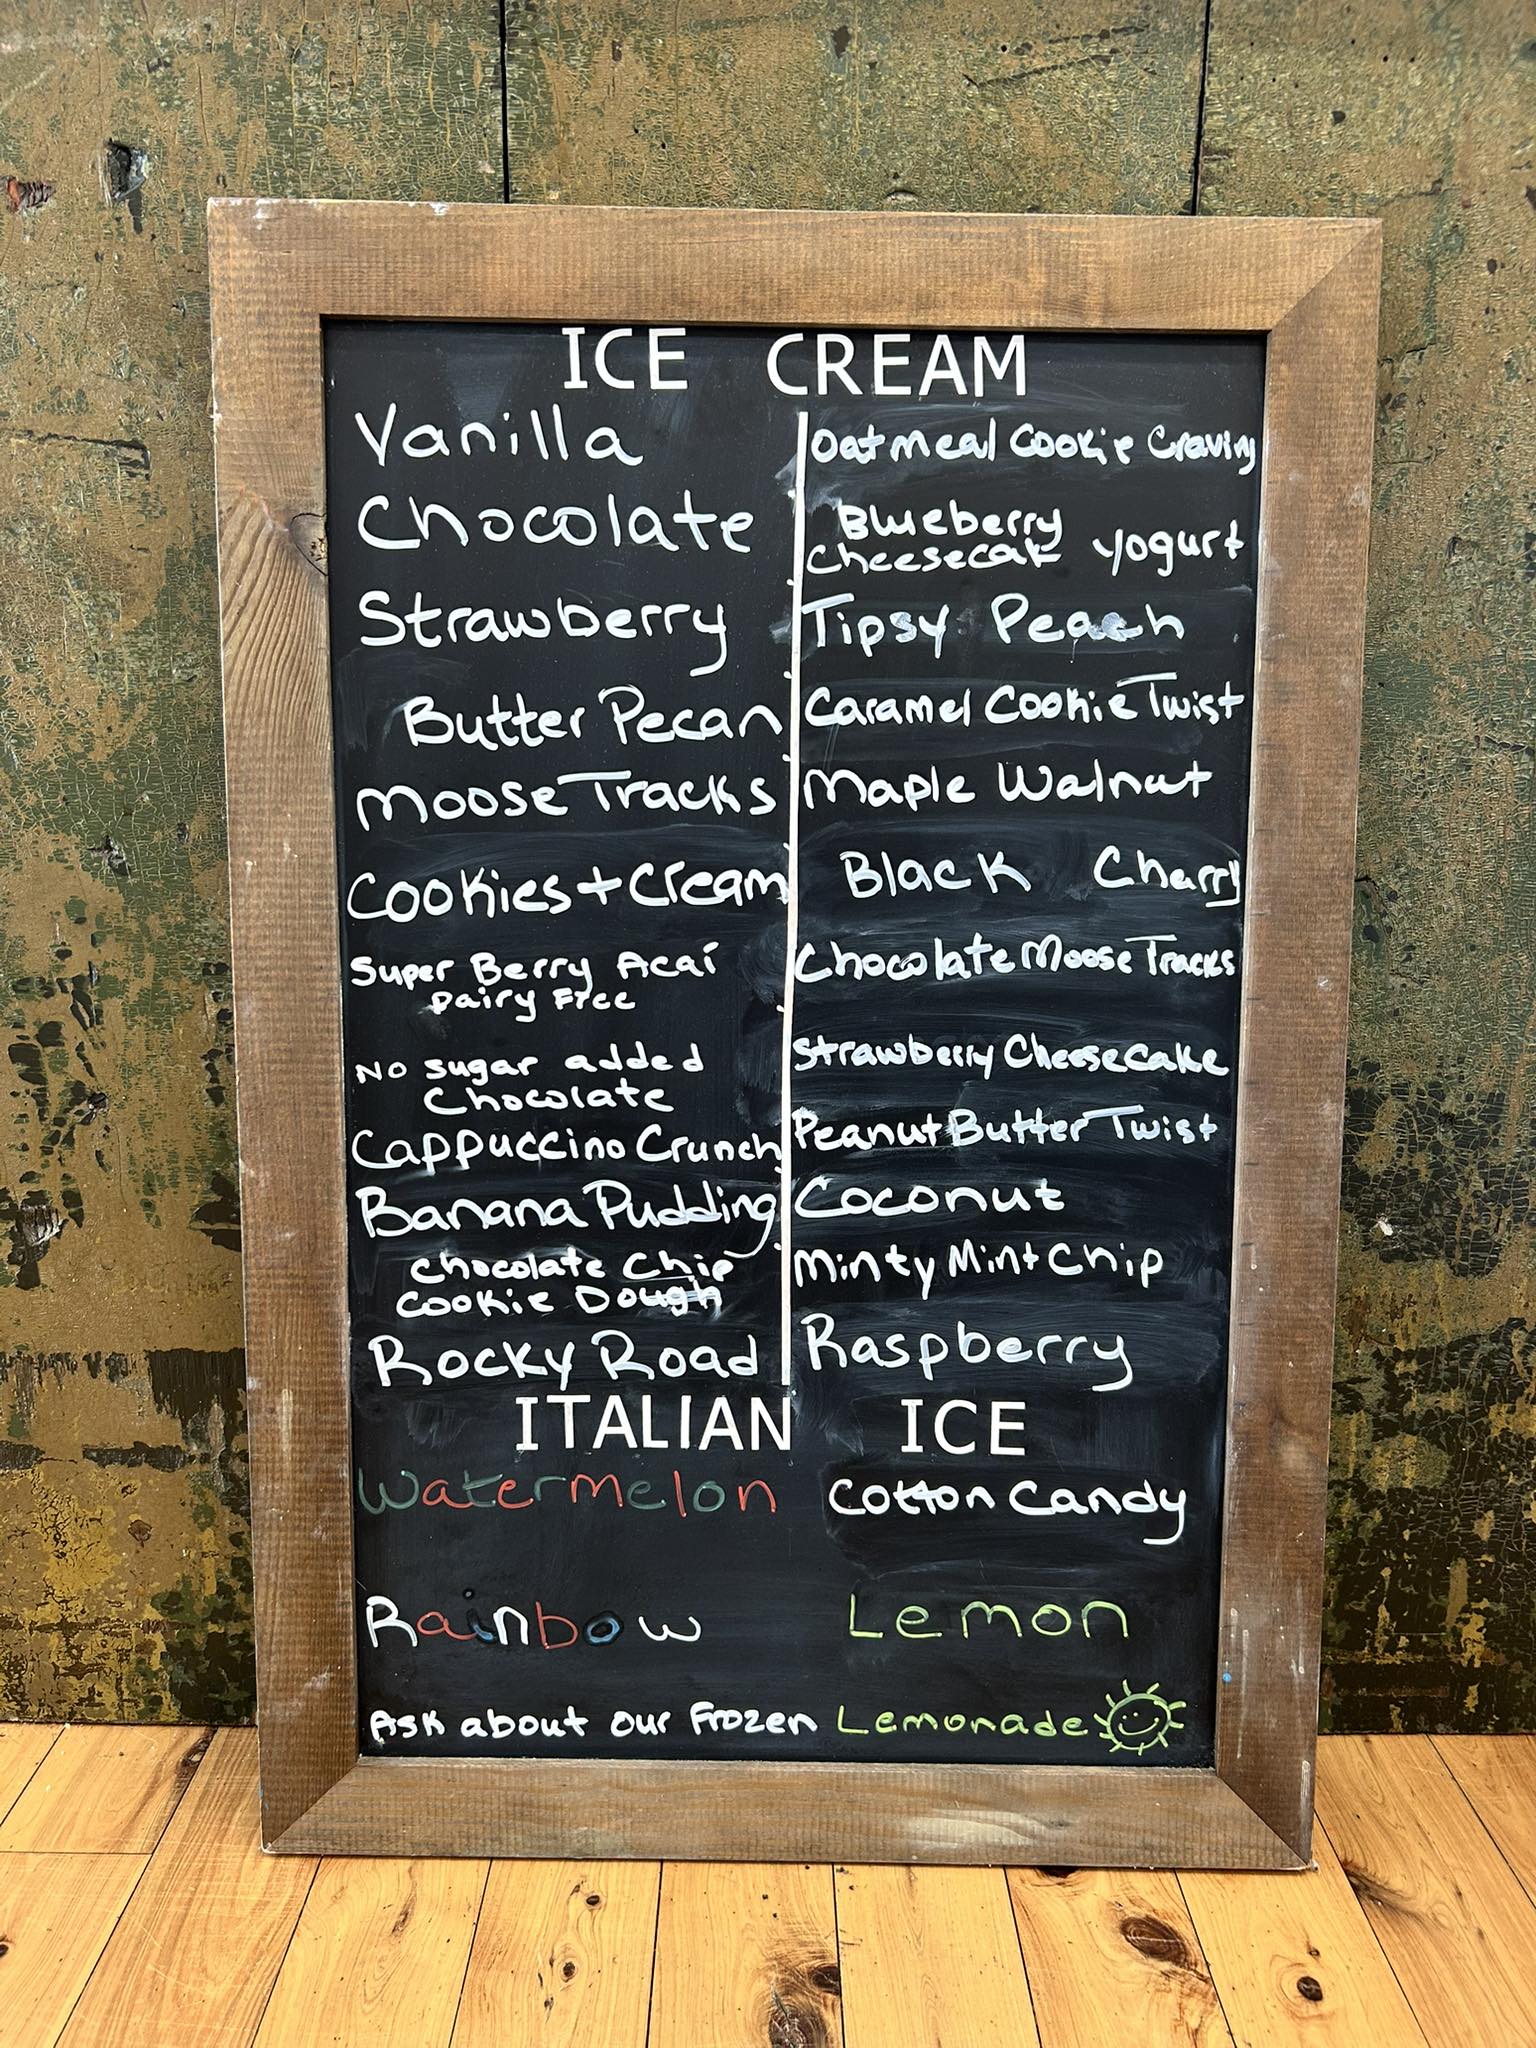 ICE CREAM
Vanilla
Chocolate
Strawberry
Butter Pecan
Moose Tracks
Cookies + Cream
Super Berry Acai
Dairy Free
No sugar added
Chocolate
Cappuccino Crunch
Banana Pudding
Chocolate Chip
Cookie Dough
Rocky Road
Oatmeal Cookie Craving
Blueberry
Cheesecake Yogurt
Tipsy Peach
Caramel Cookie Twist
Maple Walnut
Black Charry
Chocolate Moose Tracks
Strawberry Cheesecake
Peanut Butter Twist
Coconut
Minty Mint Chip
Raspberry
ITALIAN ICE
Watermelon
Cotton Candy
Rainbow
Lemon
Ask about our Frozen Lemonade